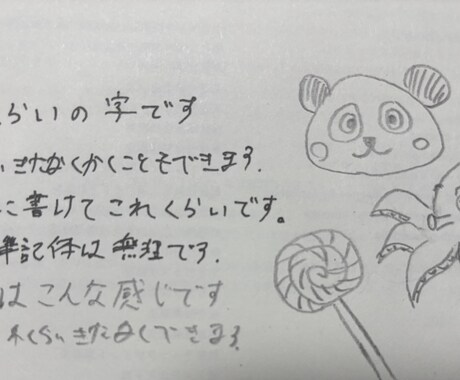 らいの字です
きたなくかくこともできます.
に書けてこれくらいです。
筆記体は無理です.
はこんな感じです
くらいきたなくできます.